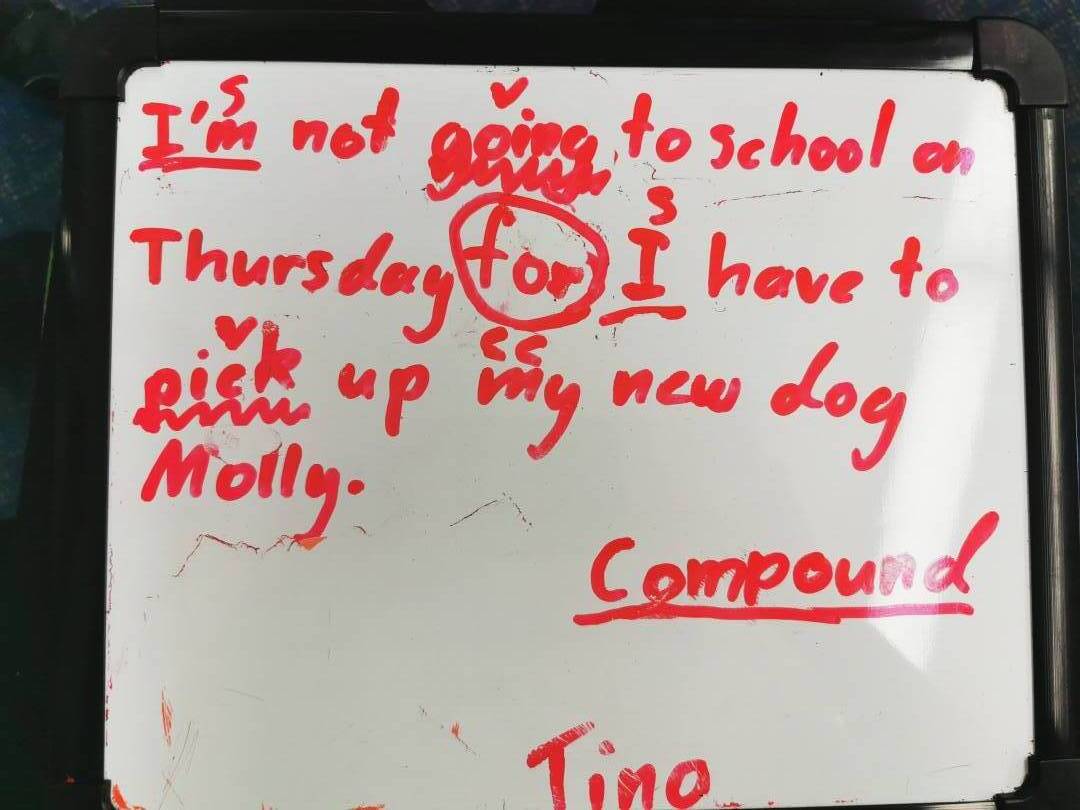 s v
I'm not going to school on
s
Thursday for I have to
v cc
pick up my new dog
Molly.
Compound
Tino